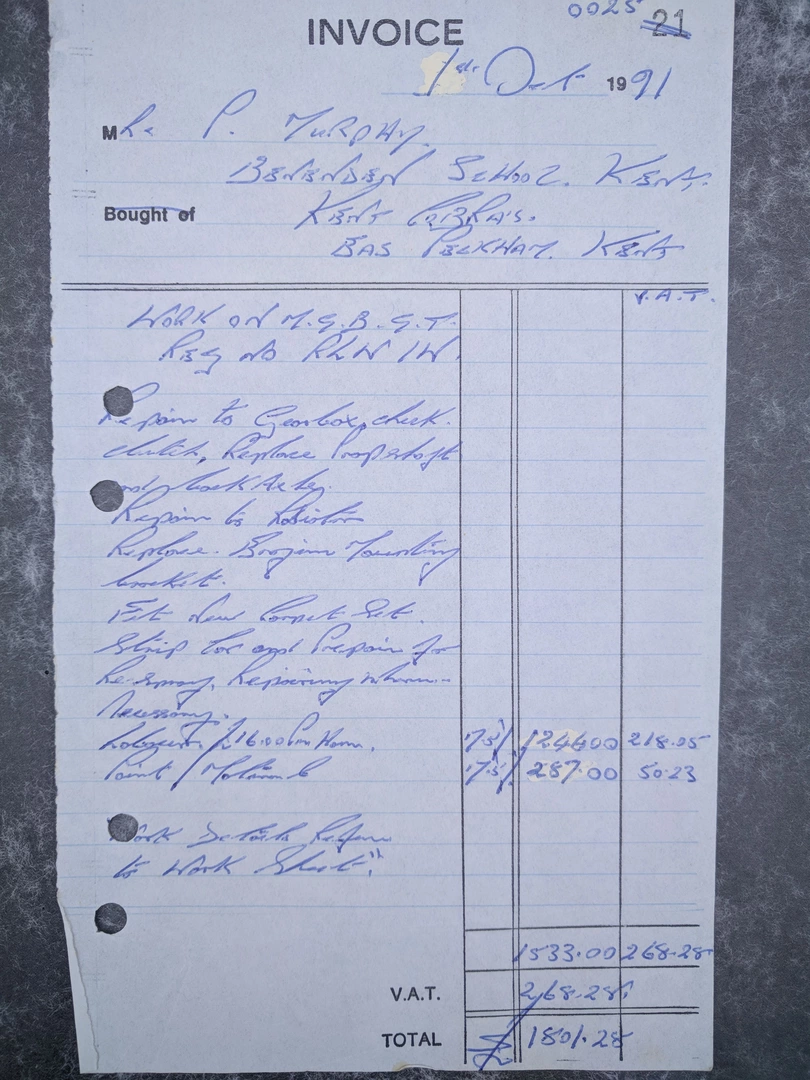 0025 21
INVOICE
1st Oct 1991
Mr. P. MURPHY.
BENENDEN SCHOOL. KENT.
Bought of KENT COBRA'S.
EAS PECKHAM. KENT
V.A.T.
WORK ON M.G.B. G.T.
REG NO RLW 1W.
Repair to Gearbox, check.
clutch, Replace Propshaft
and back Axle.
Repair to Radiator
Replace. Engine Mounting
bracket.
Fit New Carpet Set.
Strip Car and Prepair for
Re-spray, Repairing where-
Necessary.
Labour. / £16.00 Per Hour. 17.5/ 1246.00 218.05
Paint / Materials 17.5/ 287.00 50.23
Work Details Refer
to Work Sheet."
1533.00 268.28
V.A.T. 268.28
TOTAL 1801.28